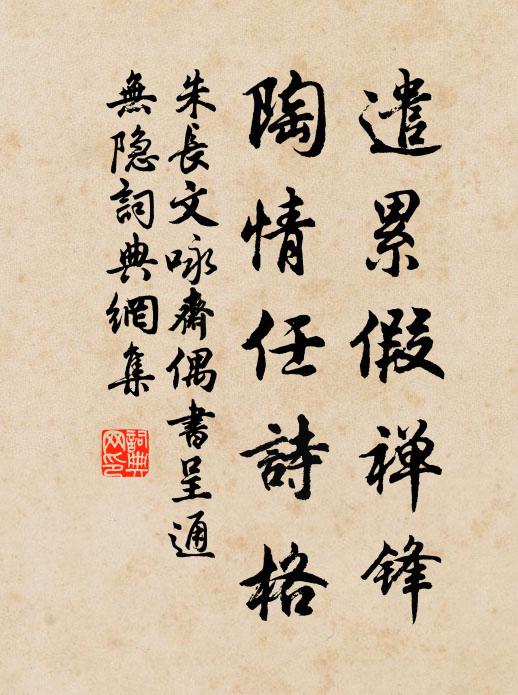 遣累假禅锋
陶情任詩格
朱長文咏齋偶書呈通
無隐詞典網集
詞典网印